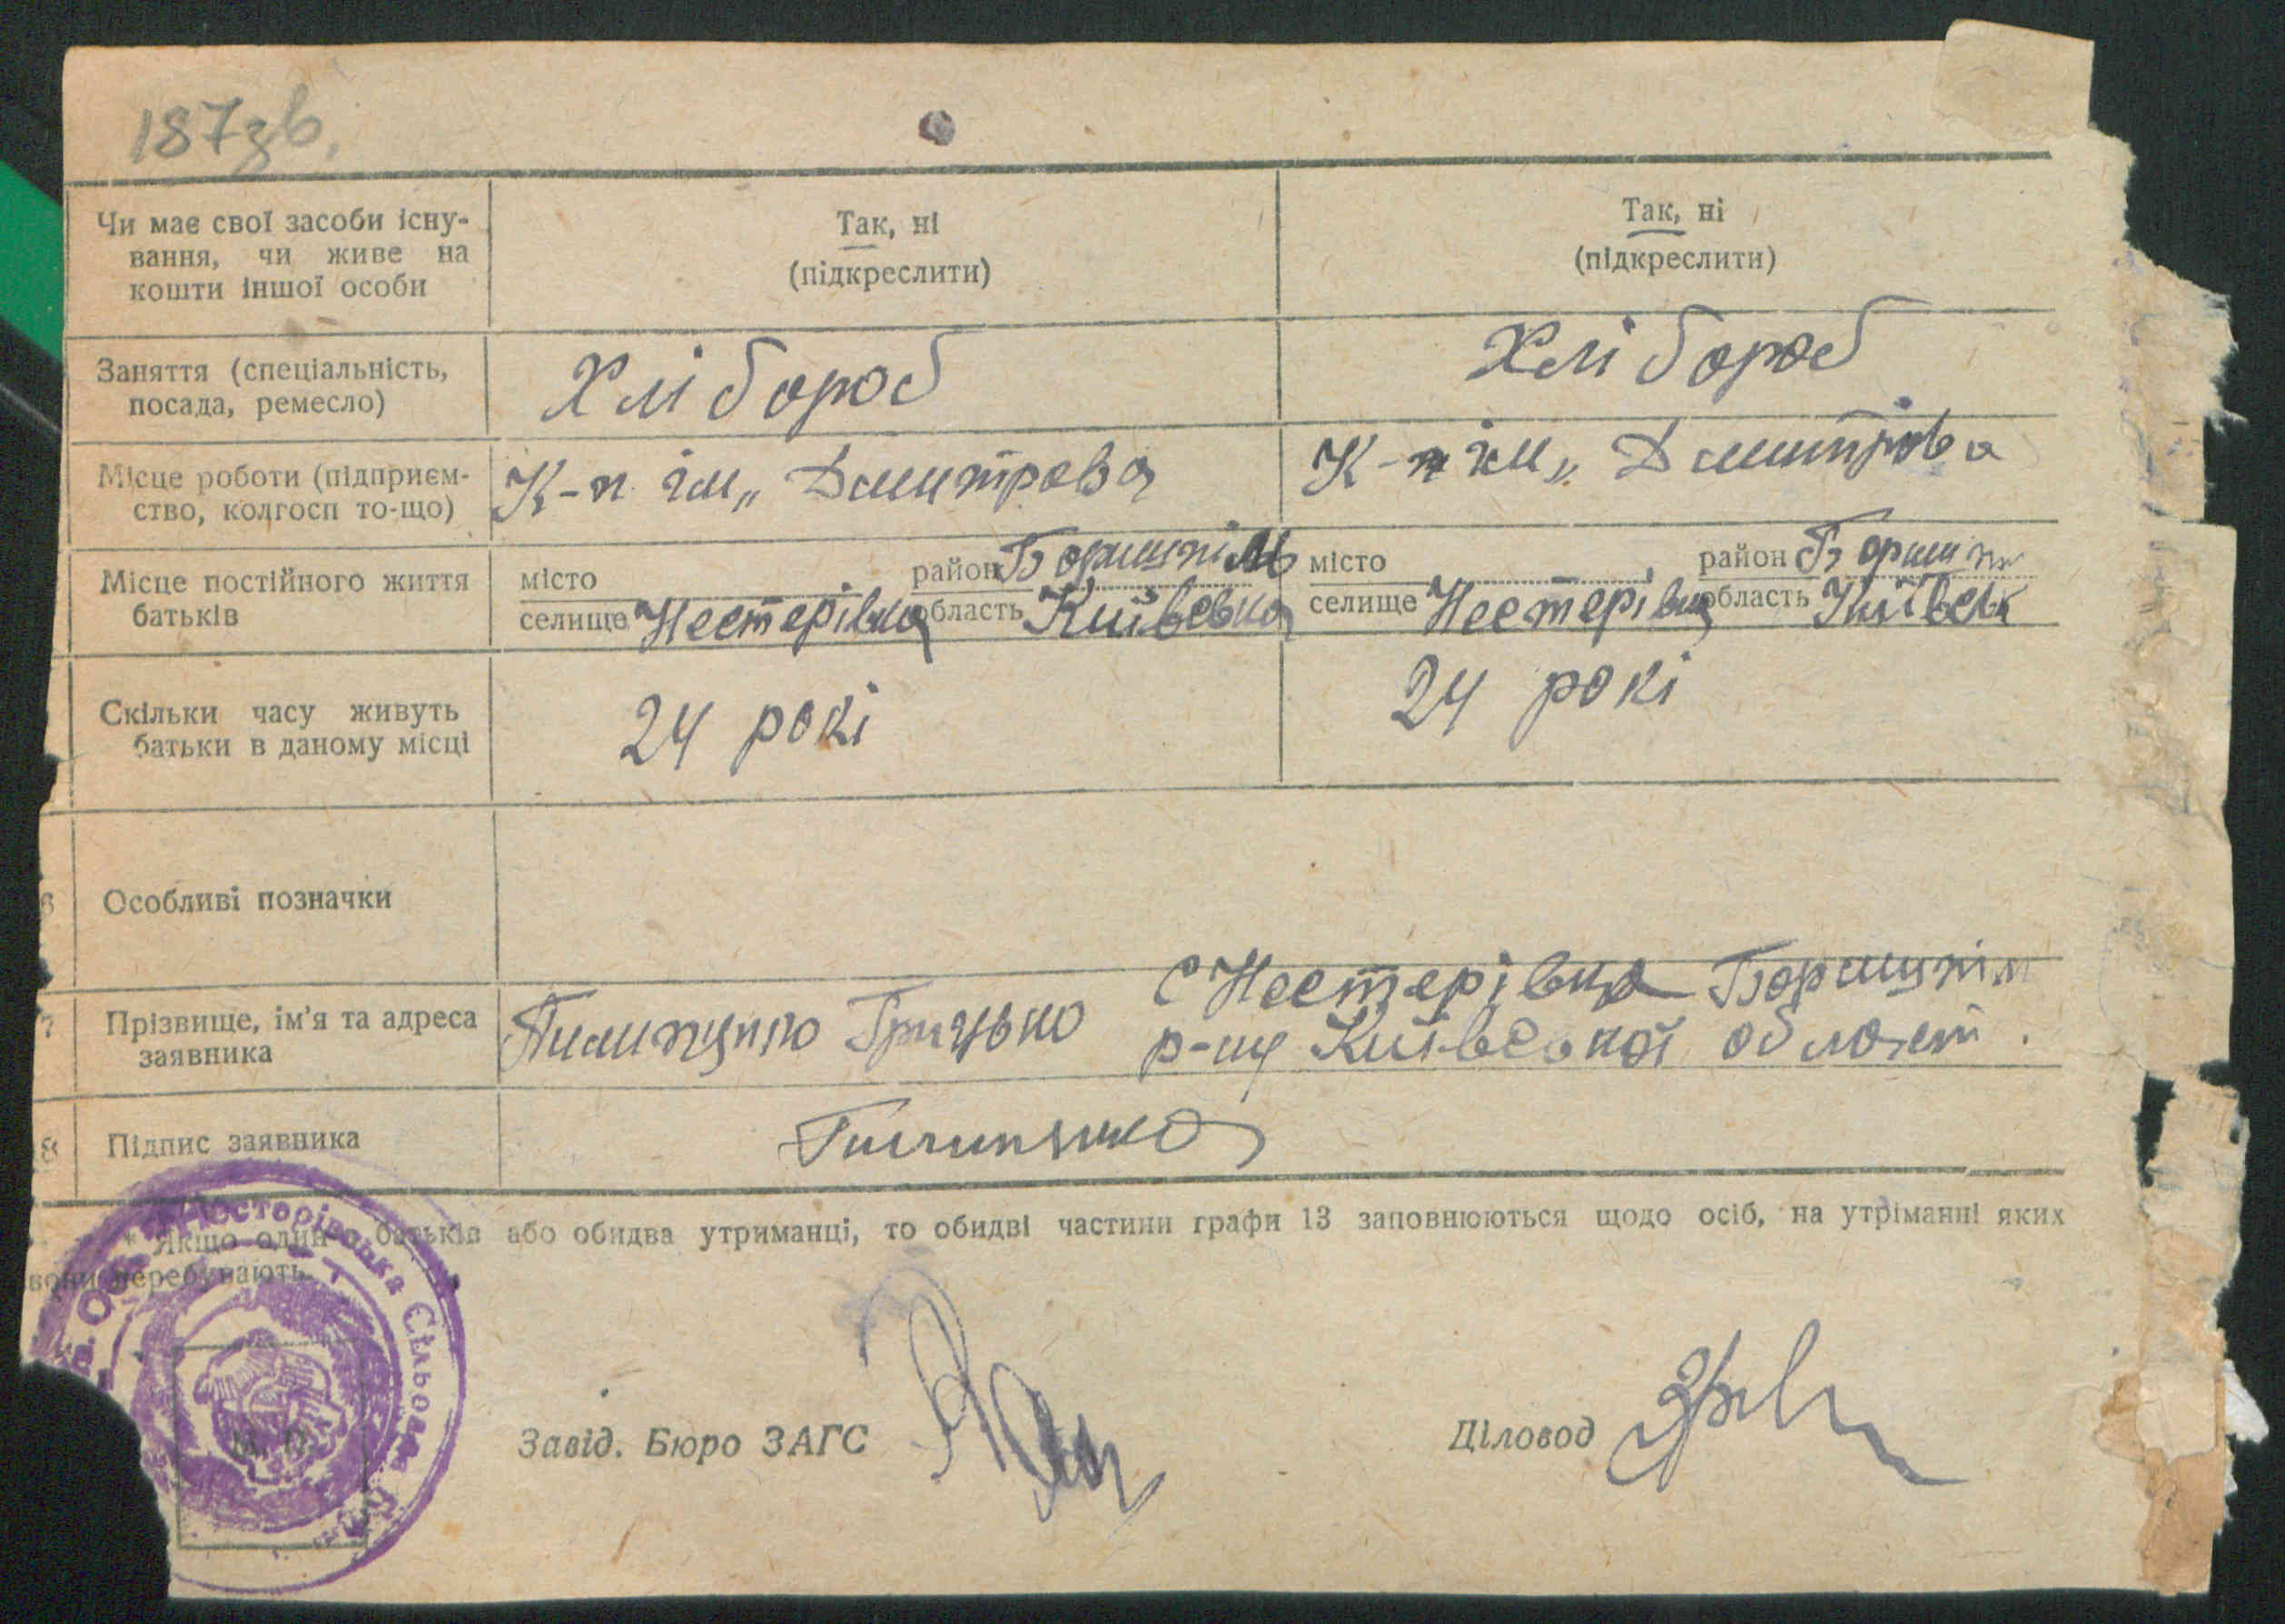 187зв.
Чи має свої засоби існу-
вання, чи живе на
кошти іншої особи
Так, ні
(підкреслити)
Так, ні
(підкреслити)
Заняття (спеціальність,
посада, ремесло)
Хлібороб
Хлібороб
Місце роботи (підприєм-
ство, колгосп то-що)
К-п ім „ Дмитрова
К-п ім „ Дмитрова
Місце постійного життя
батьків
місто район Бориспіль
селище Нестерівка область Київська
місто район Борисп
селище Нестерівка область Київськ
Скільки часу живуть
батьки в даному місці
24 рокі
24 рокі
6 Особливі позначки
7 Прізвище, ім'я та адреса
заявника
Грицько
с Нестерівка Бориспіл
р-ну Київської област.
8 Підпис заявника
* Якщо один з батьків або обидва утриманці, то обидві частини графи 13 заповнюються щодо осіб, на утріманні яких
вони перебувають.
Несторівська Сільська
М. П.
Завід. Бюро ЗАГС
Діловод